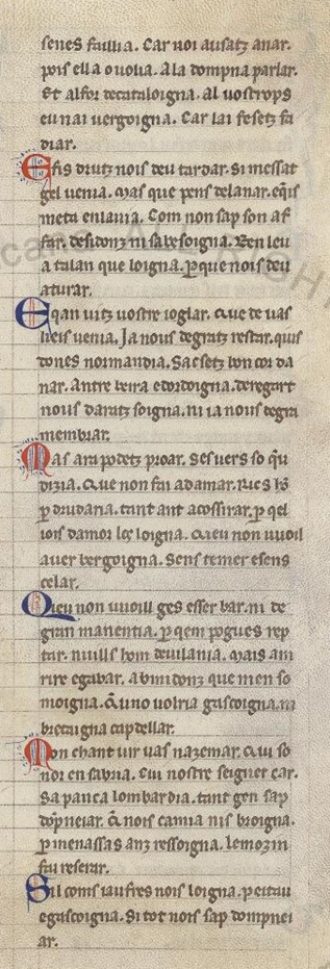 senes faillia. Car noi ausatz anar.
pois ella o volia. Ala dompna parlar.
Et alfor decataloigna. al vostrops
eu nai vergoigna. Car lai fesetz fa
diar.
Efis drutz nois deu tardar. Si messat
gel venia. Mas que pens delanar. eqis
meta en lauia. Com non sap son af
far. desidonz ni sabesoigna. Ben leu
a talan que loigna. ꝑque nois deu
aturar.
Eqan vitz vostre ioglar. Que de vas
lieis venia. Ja nous degratz restar. quis
dones normandia. Sacsetz bon cor da
nar. Antre beira edordoigna. deregart
nous daratz soigna. ni ia nous degra
membrar.
Mas ara podetz proar. Ses vers so qu
dizia. Que non fai ad amar. rics hō
ꝑ drudaria. tant ant acossirar. ꝑ qel
iois damor les loigna. Qieu non vuoil
aver vergoigna. Sens temer esens
celar.
Qieu non vuoill ges esser bar. ni de
gran manentia. ꝑ qem pogues rep
tar. nuills hom devilania. Mais am
rire egabar. ab midonz que men so
moigna. Q uno volria gascoigna. ni
bretaigna capdellar.
Mon chant vir vas nazemar. Qui so
noi en sabria. Cui nostre seigner car.
Sa panca lombardia. tant gen sap
dōpneiar. Q nois camia nis broigna.
ꝑ menassas anz ressoigna. lemozin
fai reserar.
Sil coms iaufres nois loigna. peitau
egascoigna. Si tot nois sap dompnei
ar.